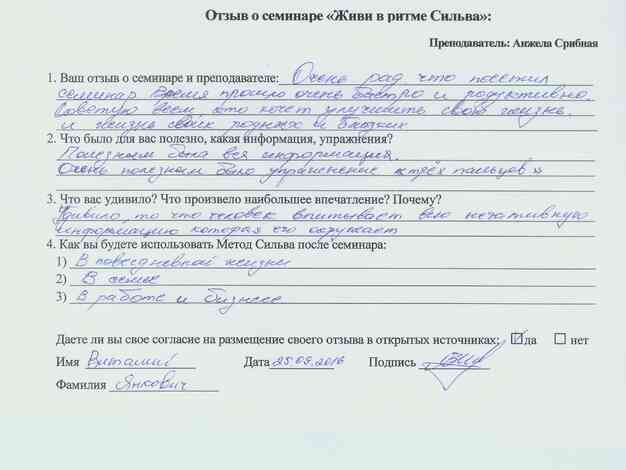 Отзыв о семинаре «Живи в ритме Сильва»:
Преподаватель: Анжела Срибная
1. Ваш отзыв о семинаре и преподавателе: Очень рад что посетил
семинар. Время прошло очень быстро и продуктивно.
Советую всем, кто хочет улучшить свою жизнь
и жизнь своих родных и близких
2. Что было для вас полезно, какая информация, упражнения?
Полезным была вся информация.
Очень полезным было упражнение «трёх пальцев»
3. Что вас удивило? Что произвело наибольшее впечатление? Почему?
Удивило, то что человек впитывает всю негативную
информацию которая его окружает
4. Как вы будете использовать Метод Сильва после семинара:
1) В повседневной жизни
2) В семье
3) В работе и бизнесе
Даете ли вы свое согласие на размещение своего отзыва в открытых источниках: да нет
Имя Виталий Дата 25.09.2016 Подпись
Фамилия Янкович